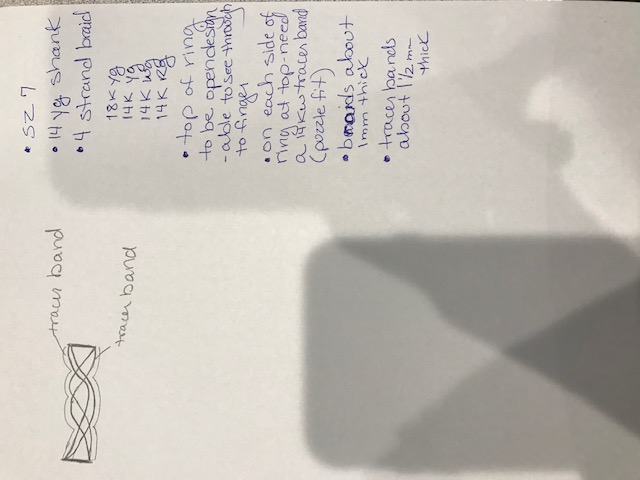 tracer band
tracer band
• SZ 7
• 14 yg shank
• 4 strand braid
18K yg
14K yg
14K wg
14K Rg
• top of ring
to be open design
- able to see through
to finger
• on each side of
ring at top - need
a 14kw tracer band
(puzzle fit)
• braids about
1mm thick
• tracer bands
about 1 1/2 mm
thick